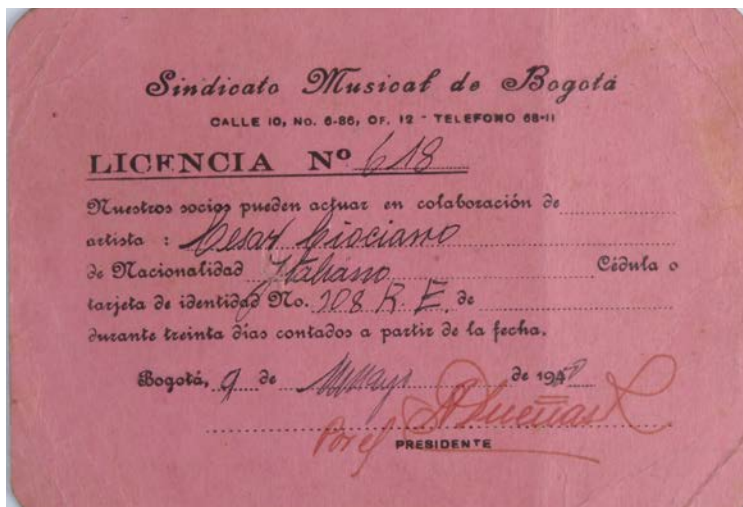 Sindicato Musical de Bogotá
CALLE 10, No. 6-86, OF. 12 - TELEFONO 68-11
LICENCIA Nº 618
Nuestros socios pueden actuar en colaboración de
artista : Cesar Ciociano
de Nacionalidad Italiano Cédula o
tarjeta de identidad No. 208 R. E. de
durante treinta días contados a partir de la fecha.
Bogotá, 9 de Mayo de 194
Por el
PRESIDENTE